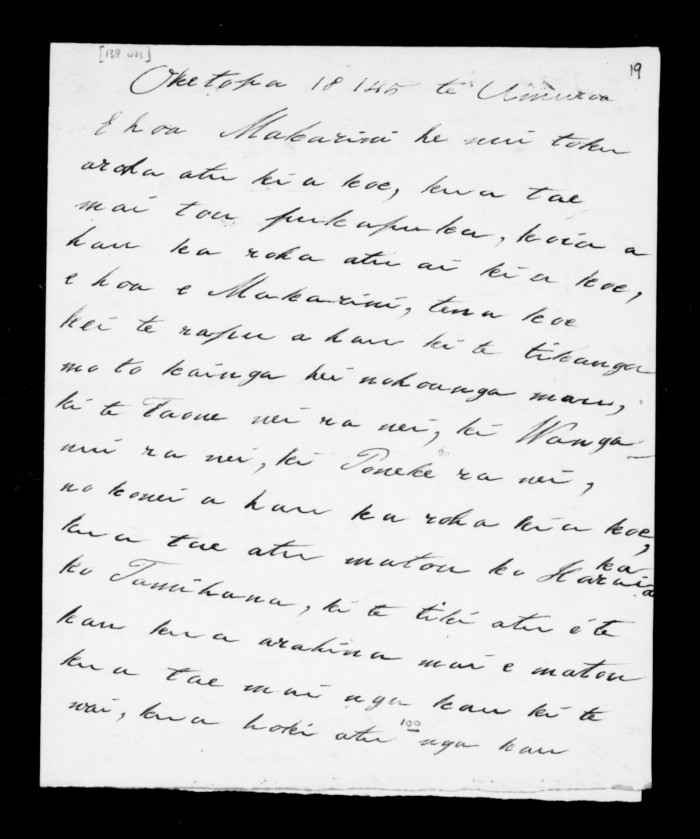 [139 wds]
19
Oketopa 18 185 te Umuroa
E hoa Makarini he nui toku
aroha atu ki a koe, kua tae
mai tou pukapuka, koia a
hau ka roha atu ai ki a koe,
e hoa e Makarini, tena koe
kei te rapu a hau ki te tikanga
mo to kainga hei nohoanga mau,
ki te Taone nei ra nei, ki Wanga-
nui ra nei, ki Poneke ra nei,
no konei a hau ka roha ki a koe,
kua tae atu matou ko Haraia ka
ko Tamihana, ki te tiki atu é te
kau kua arahina mai e matou
kua tae mai nga kau ki te
wai, kua hoki atu 100 nga kau